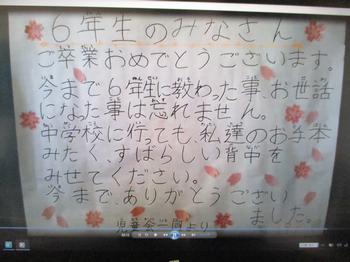 ６年生のみなさん
ご卒業おめでとうございます。
今まで６年生に教わった事、お世話
になった事は忘れません。
中学校に行っても、私達のお手本
みたく、すばらしい背中を
みせてください。
今まで、ありがとうござい
ました。
児童会一同より